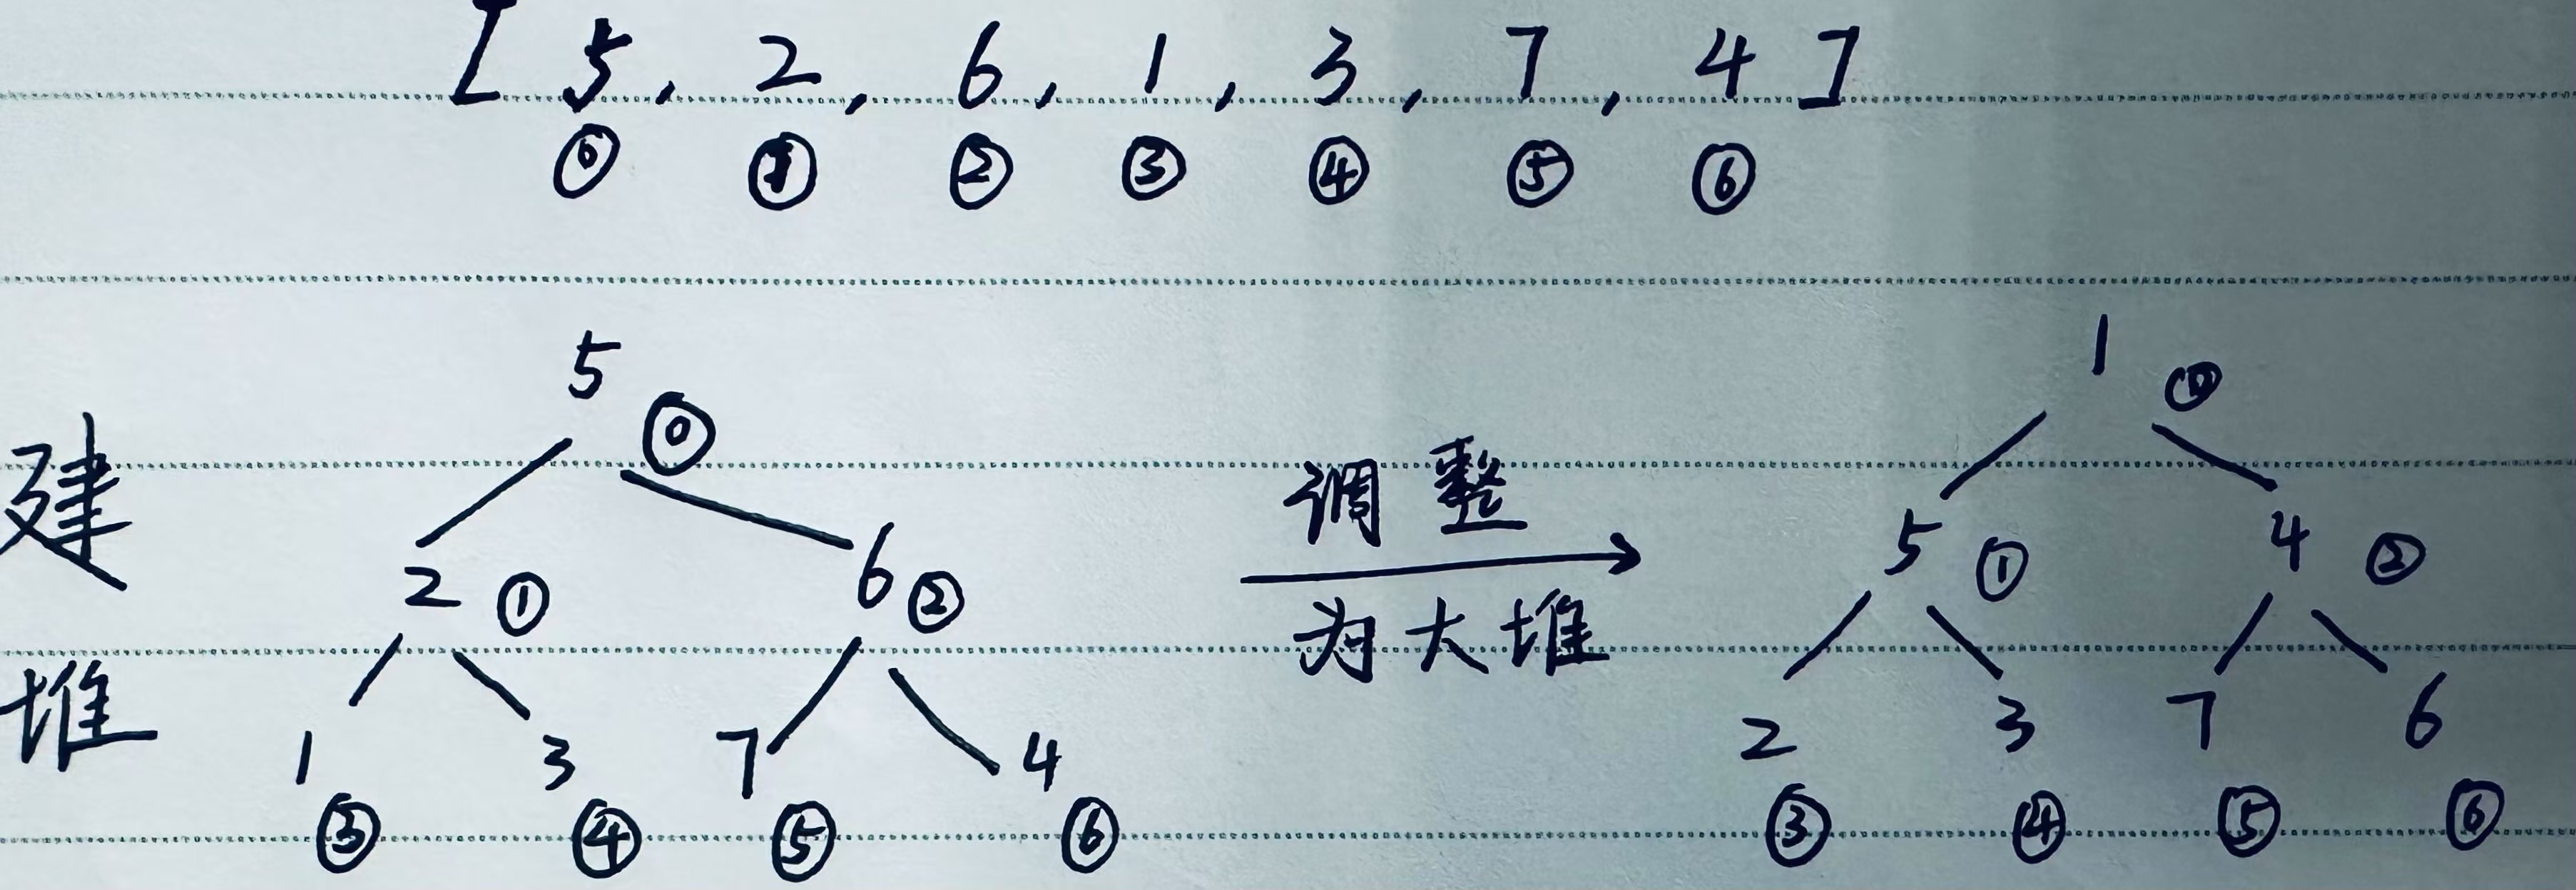 [ 5, 2, 6, 1, 3, 7, 4 ]
⓪ ① ② ③ ④ ⑤ ⑥
建堆
5 ⓪
2 ① 6 ②
1 3 7 4
③ ④ ⑤ ⑥
调整
为大堆
1 ⓪
5 ① 4 ②
2 3 7 6
③ ④ ⑤ ⑥